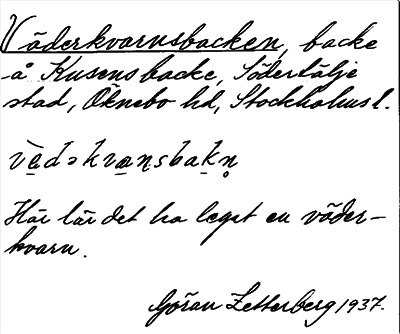 Väderkvarnsbacken, backe
å Kusens backe, Södertälje
stad, Öknebo hd, Stockholms l.
vèdəkvarnsbakn̥
Här lär det ha legat en väder-
kvarn.
Göran Zetterberg 1937.